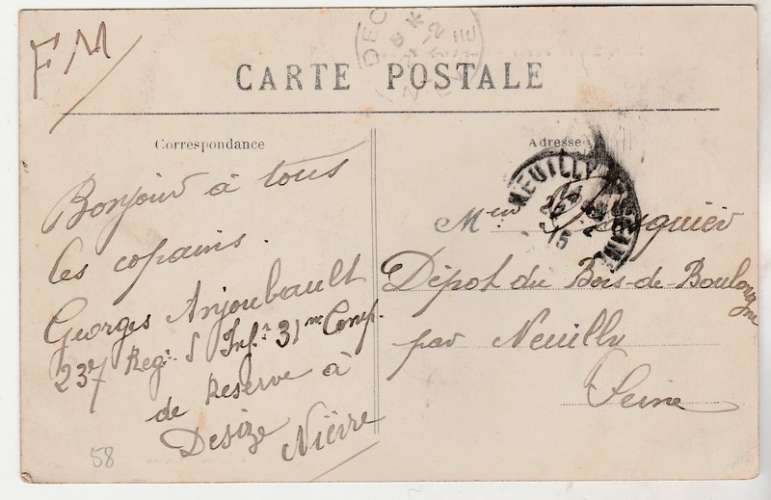 FM
CARTE POSTALE
Correspondance
Bonjour à tous
les copains.
Georges Anjoubault
237 Reg: d' Inf.ie 31me Comp.
de Reserve à
Desize Nièvre
58
Adresse
NEUILLY
15
Dépôt du Bois-de-Boulogne
par Neuilly
Seine